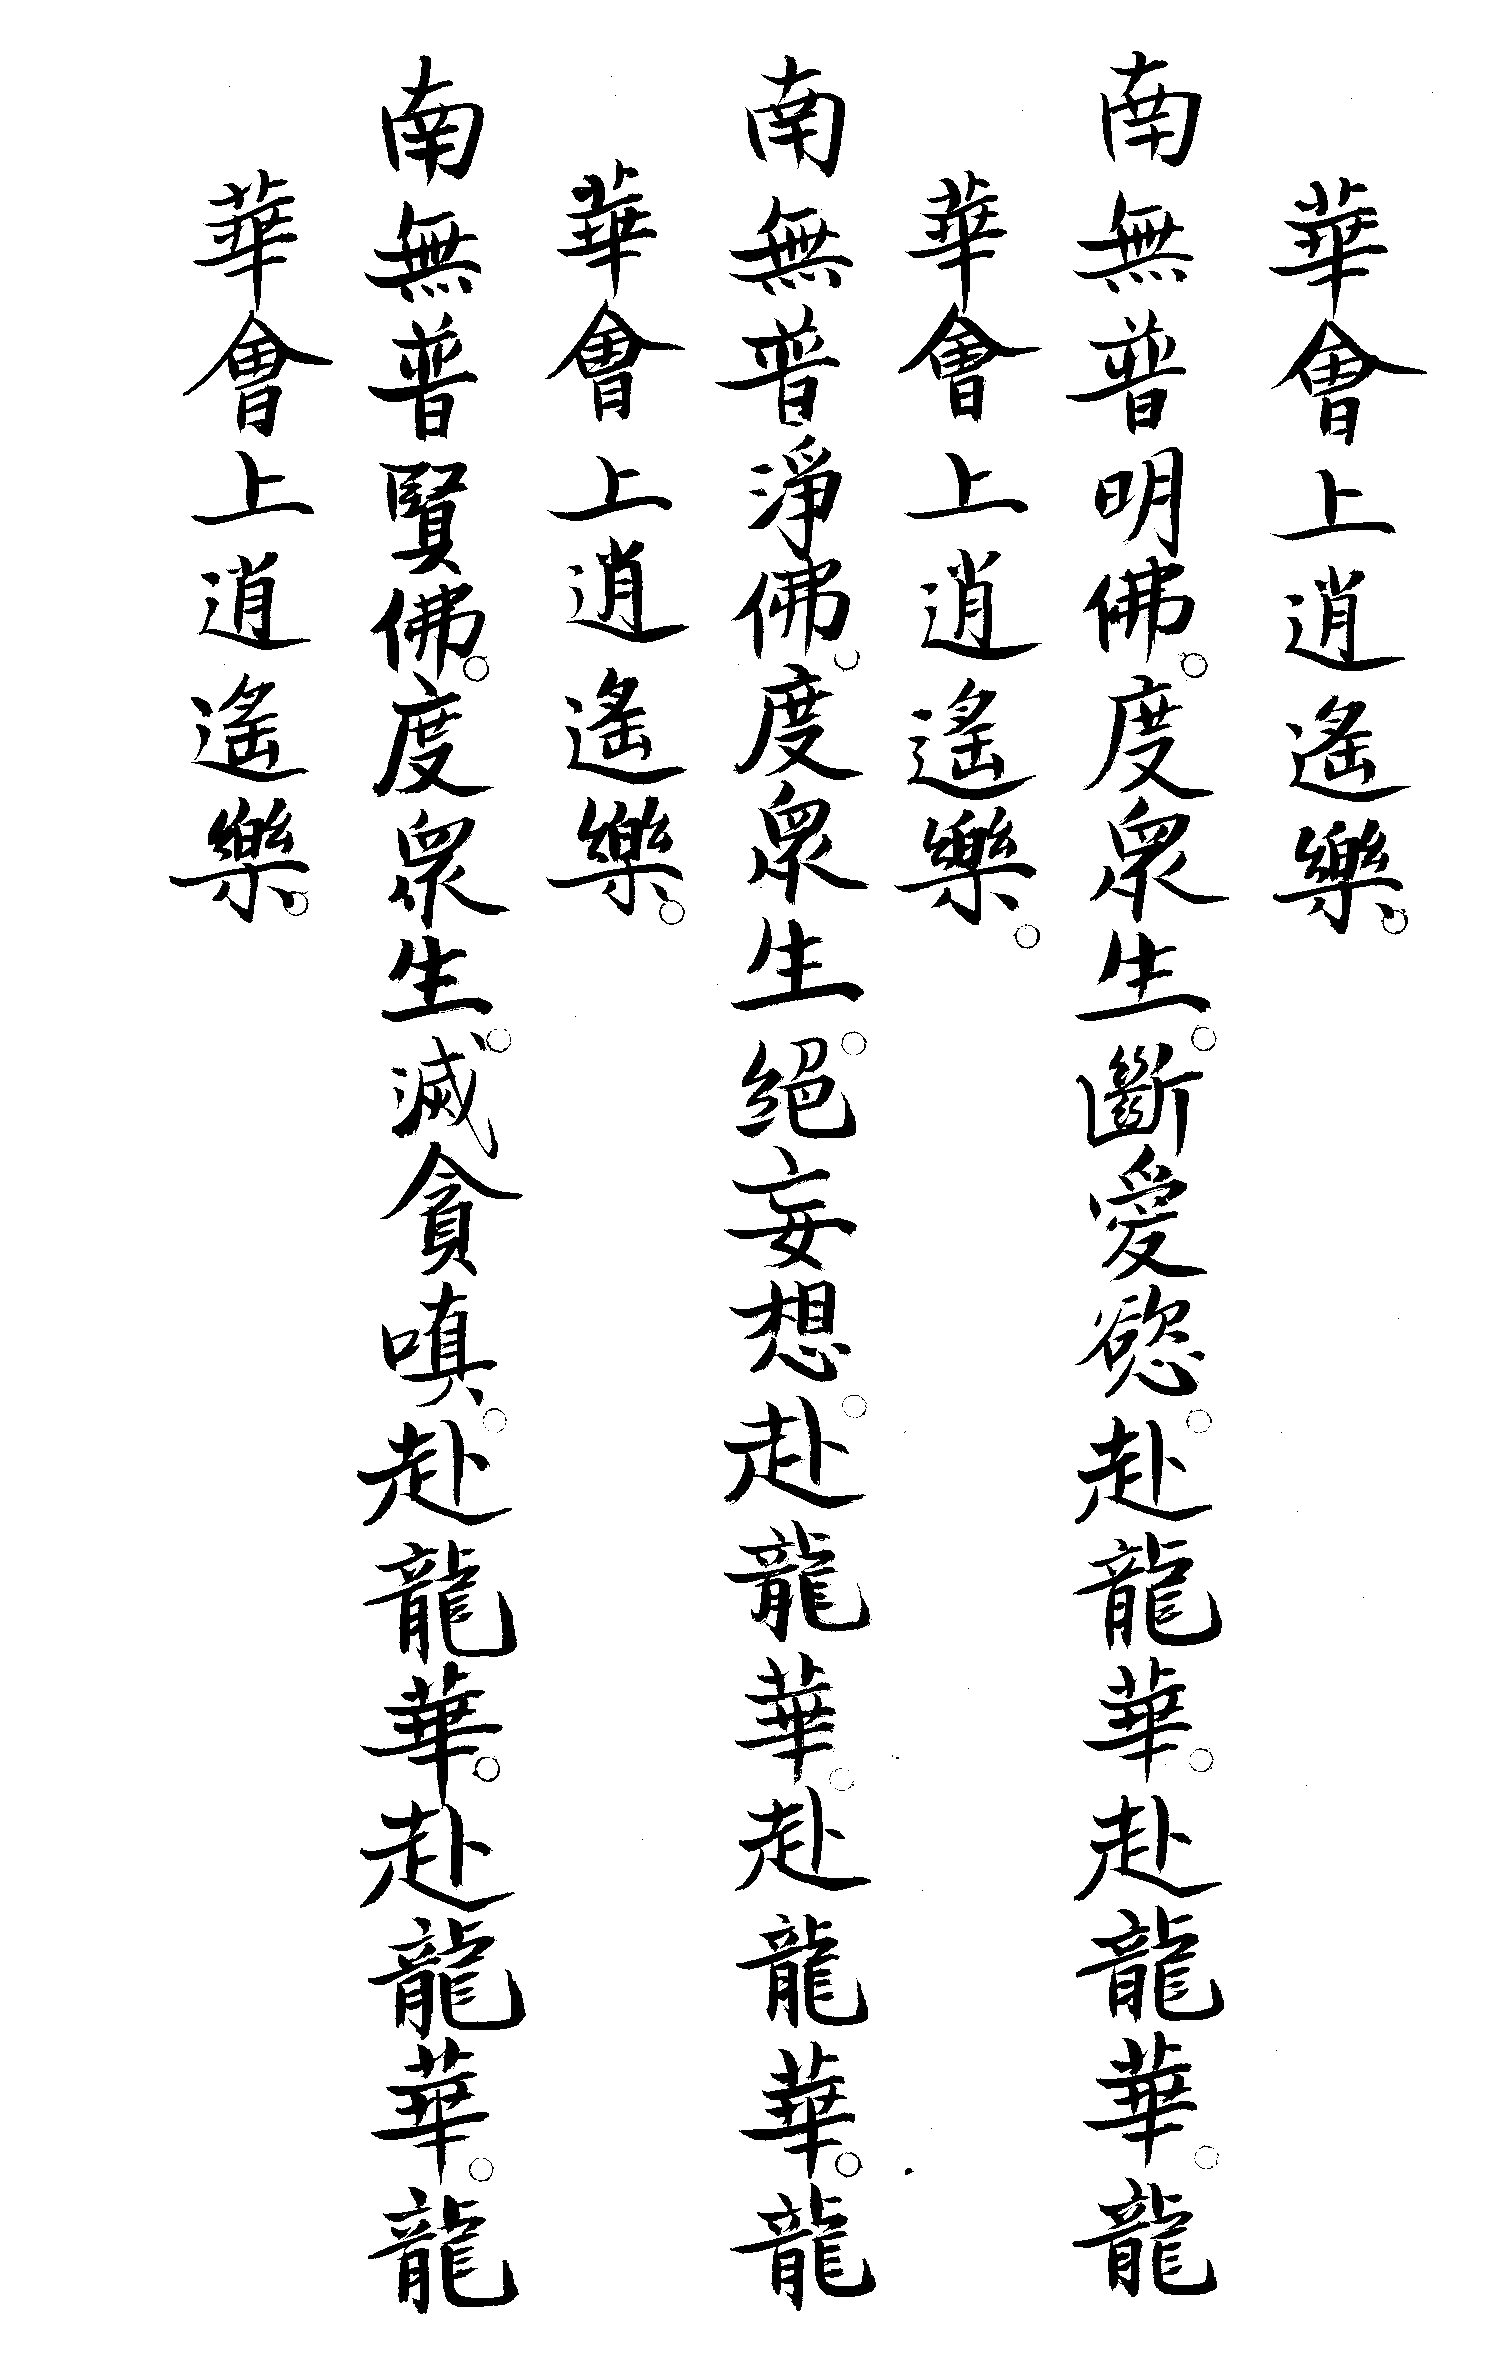 華會上逍遙樂。
南無普明佛。度眾生。斷愛慾。赴龍華。赴龍華。龍
華會上逍遙樂。
南無普淨佛。度眾生。絕妄想。赴龍華。赴龍華。龍
華會上逍遙樂。
南無普賢佛。度眾生。滅貪嗔。赴龍華。赴龍華。龍
華會上逍遙樂。